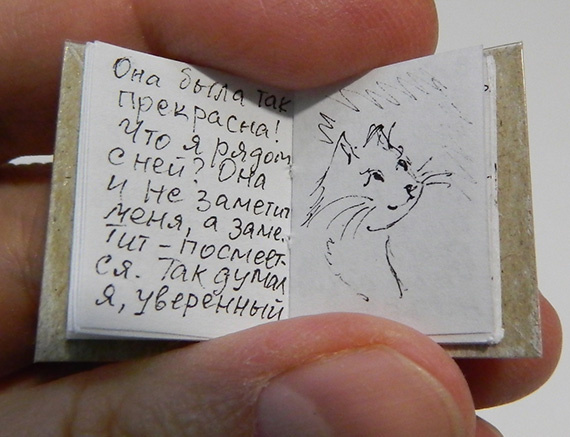 Она была так
прекрасна!
Что я рядом
с ней? Она
и не заметит
меня, а заме-
тит - посмеет-
ся. Так думал
я, уверенный